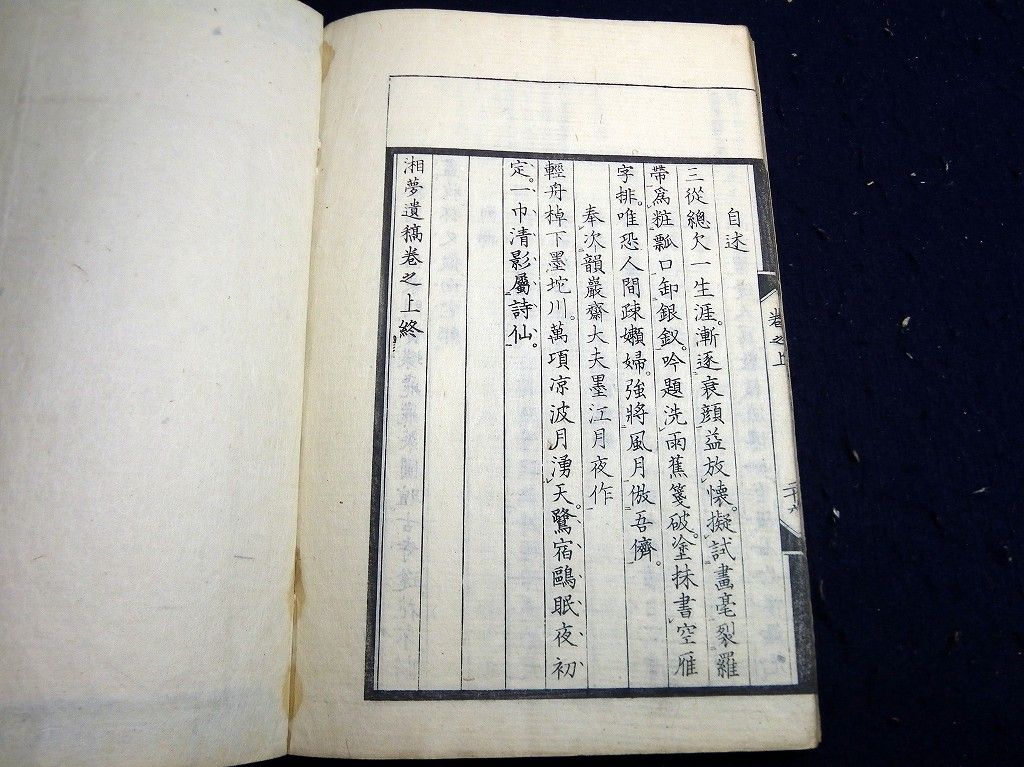 自述
三從總欠一生涯。漸逐衰顔益放懷。擬試畫毫裂羅
帶爲粧瓢口卸銀釵。吟題洗雨蕉箋破。塗抹書空雁
字排。唯恐人間疎嬾婦。強將風月倣吾儕。
奉次韻巖齋大夫墨江月夜作
輕舟棹下墨坨川。萬頃凉波月湧天。鷺宿鷗眠夜初
定。一巾清影屬詩仙。
湘夢遺稿卷之上終
卷之上
二十八